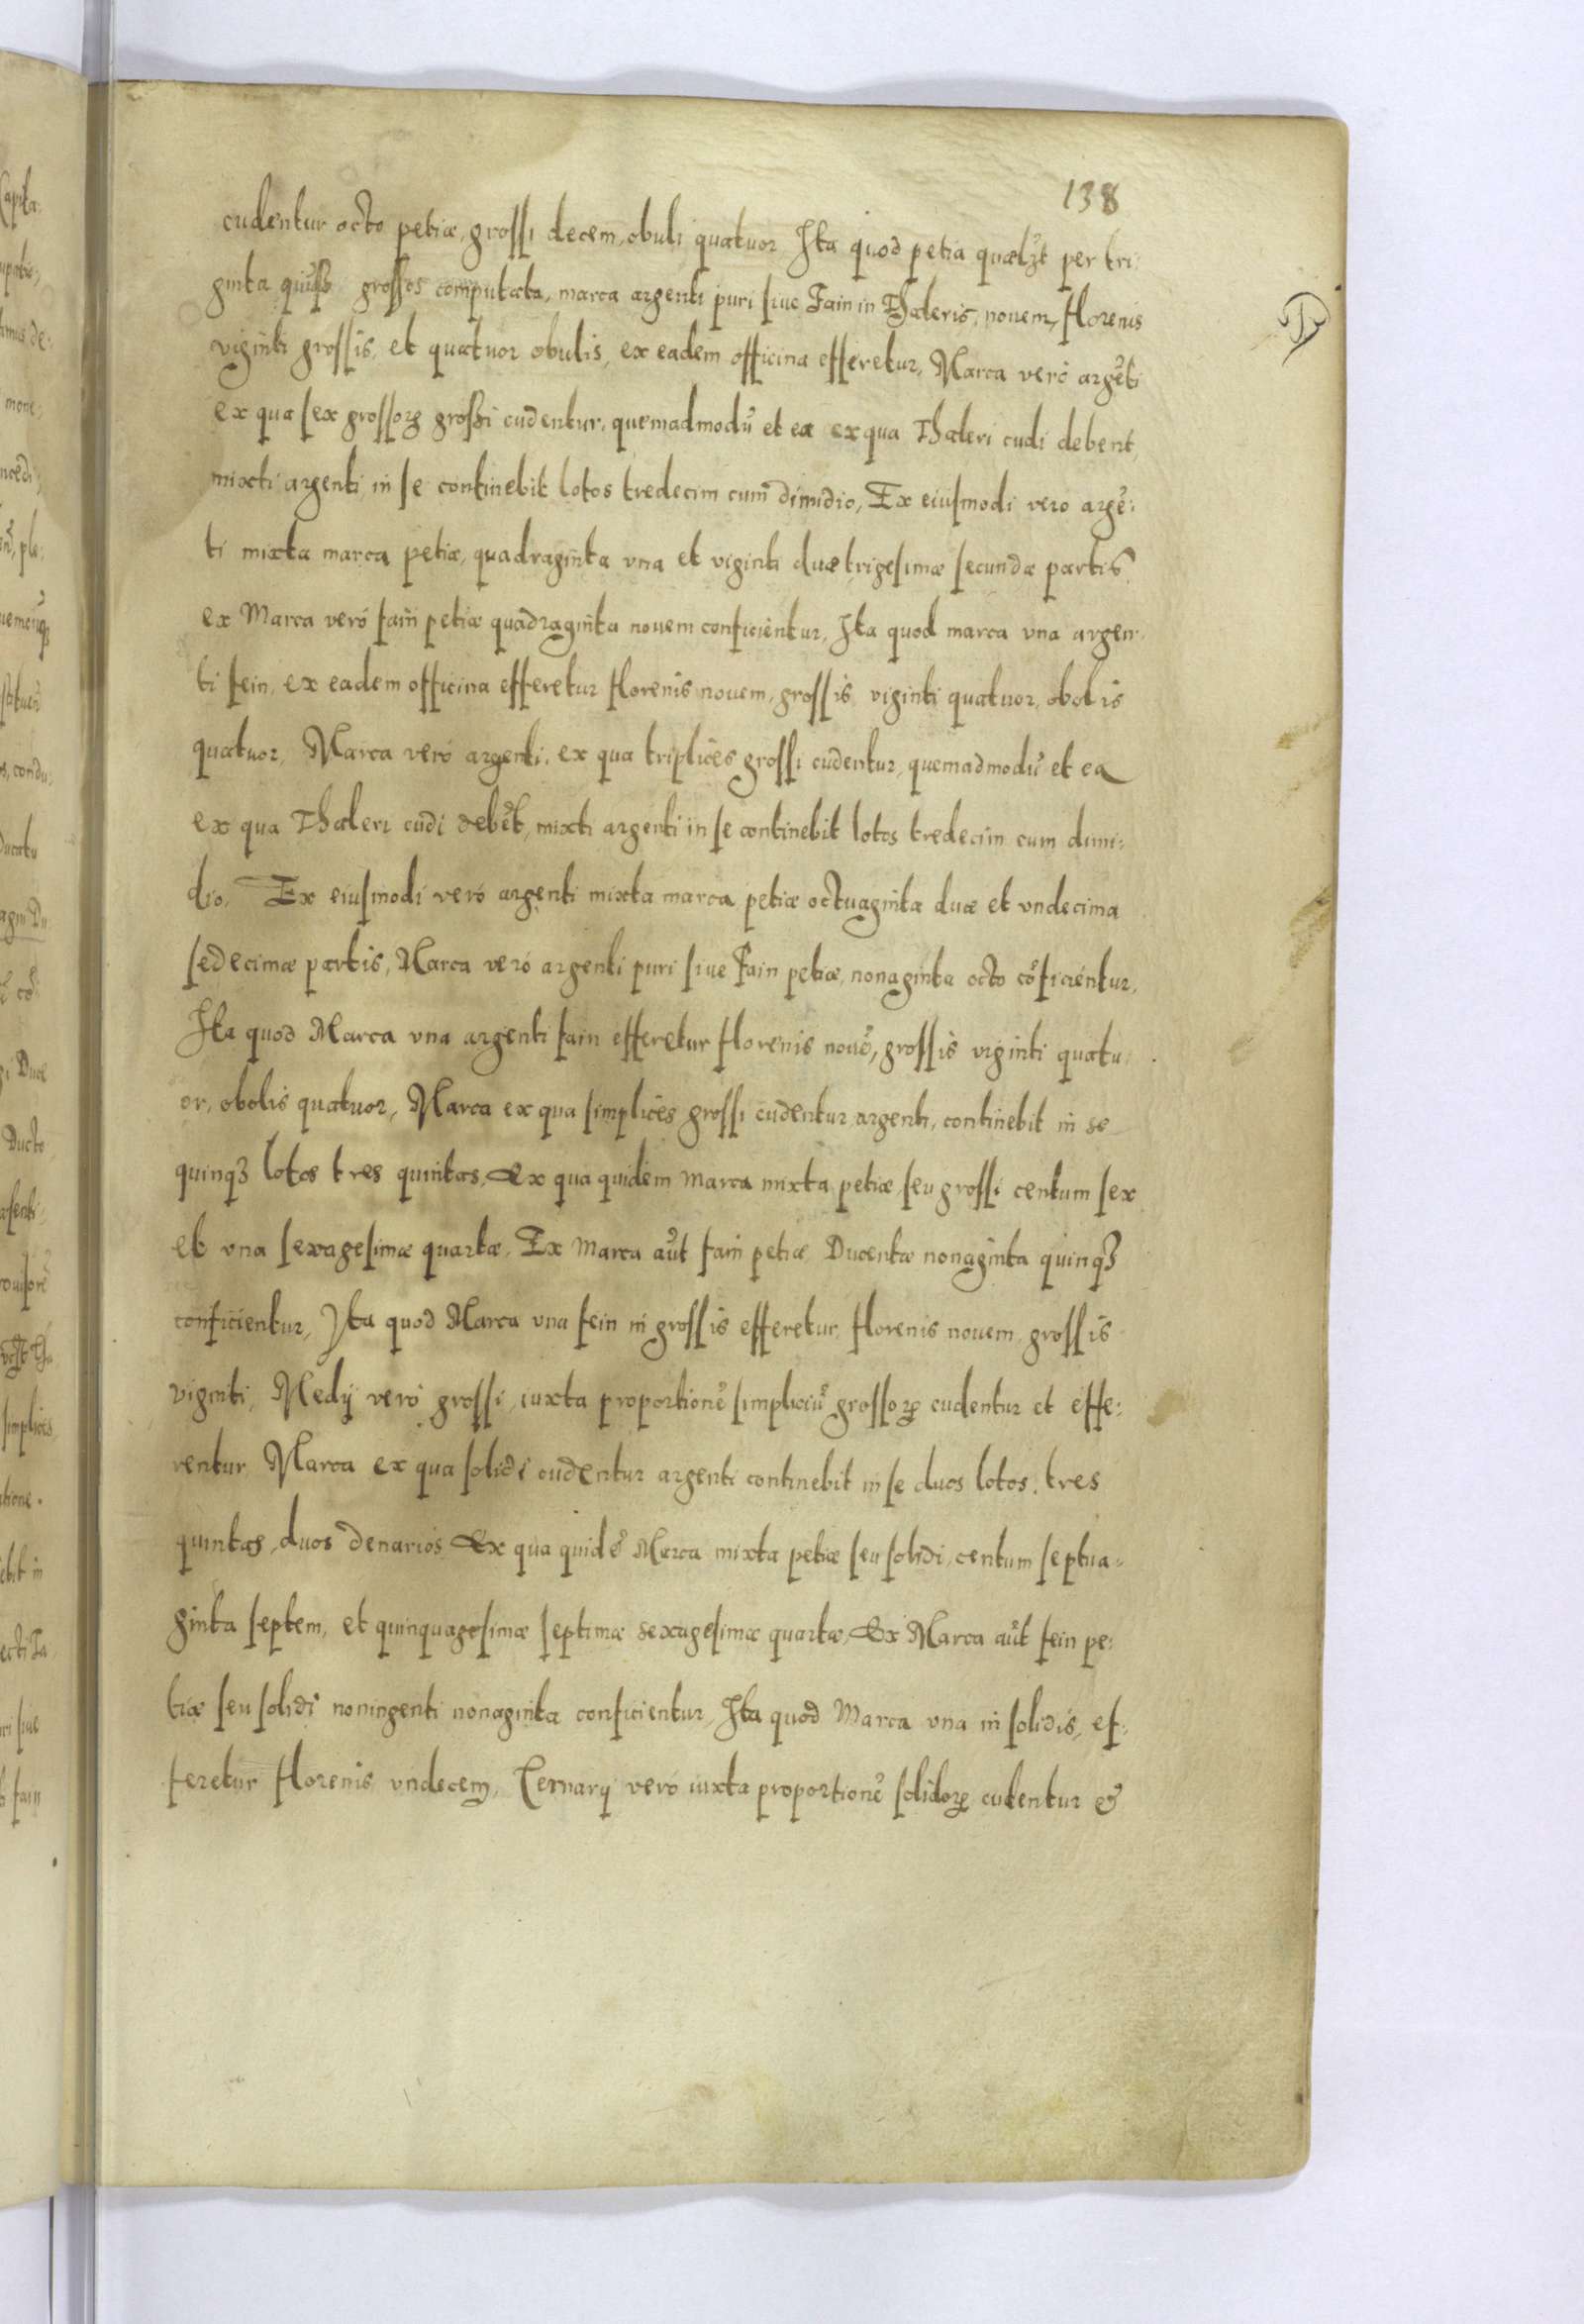 138
cudentur octo petiæ, grossi decem, obuli quatuor Ita quod petia quælꝫt per tri
ginta grossos computata, marca argenti puri siue Fain in Thaleris, nouem, florenis
viginti grossis, et quatuor obulis, ex eadem officina efferetur, Marca vero argẽti
ex qua sex grossoꝝ grossi cudentur, quemadmodũ et ea ex qua Thaleri cudi debent,
mixti argenti in se continebit lotos tredecim cum dimidio, Ex eiusmodi vero argẽ:
ti mixta marca petiæ, quadraginta vna et viginti duæ trigesimæ secundæ partis
ex Marca veró fain petiæ quadraginta nouem conficientur, Ita quod marca vna argen
ti fein, ex eadem officina efferetur florenis nouem, grossis viginti quatuor, obolis
quatuor, Marca veró argenti, ex qua triplices grossi cudentur, quemadmodũ et ea
ex qua Thaleri cudi debẽt, mixti argenti in se continebit lotos tredecim cum dimi:
dio, Ex eiusmodi veró argenti mixta marca petiæ octuaginta duæ et vndecima
sedecimæ partis, Marca veró argenti puri siue Fain petiæ, nonaginta octo cõficientur,
Ita quod Marca vna argenti fain efferetur florenis nouẽ, grossis viginti quatu
or, obolis quatuor, Marca ex qua simplices grossi cudentur argenti, continebit in se
quinqꝫ lotos tres quintas, Ex qua quidem marca mixta petiæ, seu grossi centum sex
et vna sexagesimæ quartæ, Ex marca aũt fain petiæ Ducentæ nonaginta quinqꝫ
conficientur, Ita quod Marca vna fein in grossis efferetur, florenis nouem, grossis
viginti, Medij veró grossi, iuxta proportionẽ simpliciũ grossoꝝ cudentur et effe:
rentur Marca ex qua solidi cudentur argenti continebit in se duos lotos, tres
quintas, duos denarios Ex qua quidẽ Marca mixta petiæ seu solidi, centum septua-
ginta septem, et quinquagesimæ septimæ sexagesimæ quartæ, Ex Marca aũt fein pe:
tiæ seu solidi noningenti nonaginta conficientur, Ita quod Marca vna in solidis, ef:
feretur florenis vndecem, Ternarij veró iuxta proportionẽ solidoꝝ cudentur &